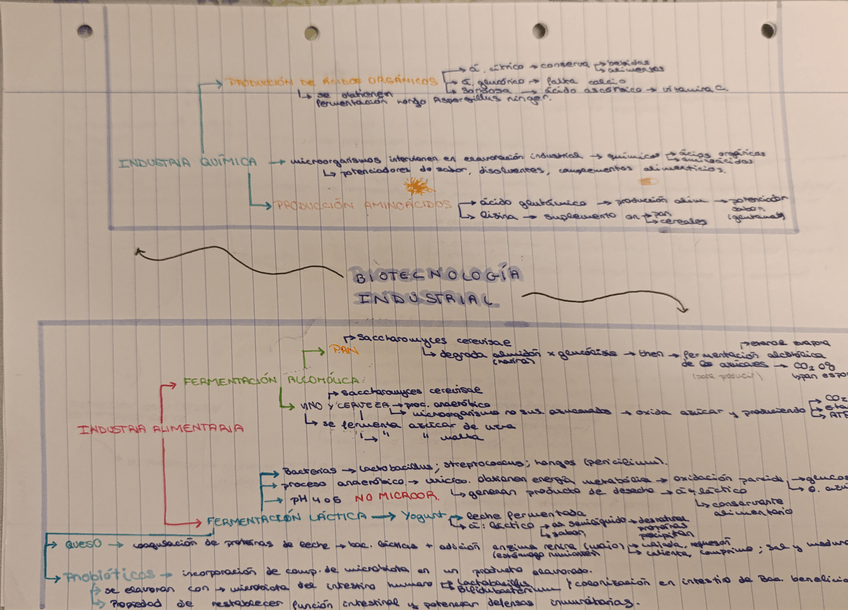 á. cítrico → conserva → bebidas
alimentos
PRODUCCIÓN DE ÁCIDOS ORGÁNICOS
á. glucónico → falta calcio
sorbosa → ácido ascórbico → vitamina C.
se obtienen
fermentación hongo Aspergillus ninger.
INDUSTRIA QUÍMICA → microorganismos intervienen en elaboración industrial → químicos → ácios orgánicos
aminoácidos
potenciadores de sabor, disolventes, complementos alimenticios.
PRODUCCIÓN AMINOÁCIDOS
ácido glutámico → producción alim → potenciador
sabor
(glutamato)
lisina → suplemento en pan
cereales
BIOTECNOLOGÍA
INDUSTRIAL
saccharomyces cerevisae
PAN
degrada almidón x glucólisis → tien → fermentación alcohólica
(harina)
de los azúcares → CO2
etanol evapora
pan espo
FERMENTACIÓN ALCOHÓLICA
saccharomyces cerevisae
VINO Y CERVEZA → proc. anaeróbico
microorganismo no sus. → oxida azúcar y produciendo
CO2
eta
ATP
se fermenta azúcar de uva
" " malta
INDUSTRIA ALIMENTARIA
Bacterias → Lactobacillus; streptococcus; hongos (penicillium).
proceso anaeróbico → micro. obtienen energía metabólica → oxidación parcial → glucos
pH 4 o 5 NO MICROOR. generan producto de desecho → á. láctico
conservante
alimentario
FERMENTACIÓN LÁCTICA → Yogurt → leche fermentada
á. láctico → semisíquido → desnaturaliza
sabor
proteínas
precipitan
QUESO → coagulación de proteínas de leche → bac. lácticas + adición enzima renina (cuajo) → cuajada,
(estómago rumiantes)
calienta, comprime; sal y madura
Probióticos → incorporación de comp. de microbiota en un producto elaborado.
se elaboran con → microbiota del intestino humano → Lactobacillus
Bifidubacterium } colonización en intestino de Bac. beneficio
Propiedad de restablecer función intestinal y potencian defensas inmunitarias.